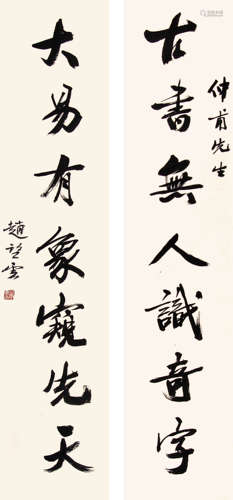 仲肯先生
古書無人識奇字
大易有象窺先天
趙望雲